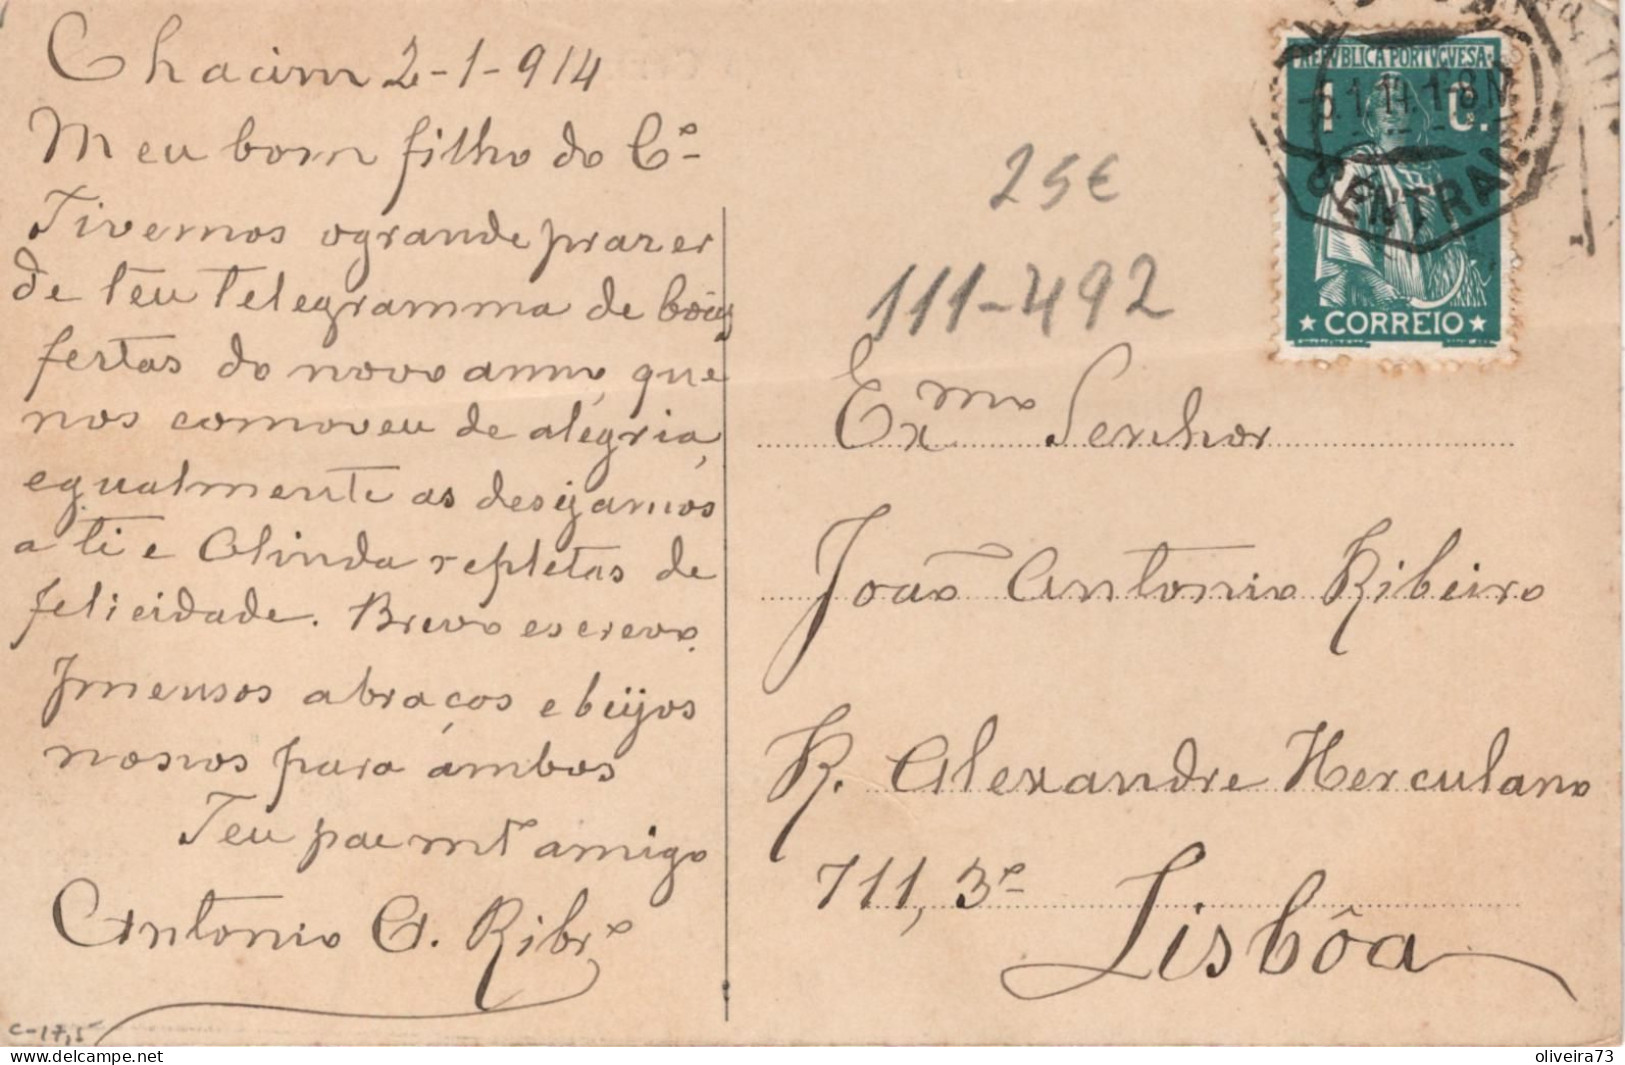 Chacim 2-1-914
Meu bom filho do C.º
Tivemos o grande prazer
de teu telegramma de bôas
fertas do novo anno, que
nos comoveu de alegria,
egualmente as desijamos
a ti e Olinda repletas de
felicidade. Breve escrevo.
Imensos abraços e beijos
nossos para ambos
Teu pae mt amigo
Antonio A. Ribrº
c-17,5
25€
111-492
REPUBLICA PORTUGUESA
1 C.
CORREIO
CENTRAL
Exmo Senhor
João Antonio Ribeiro
R. Alexandre Herculano
711, 3º
Lisbôa
oliveira73
www.delcampe.net